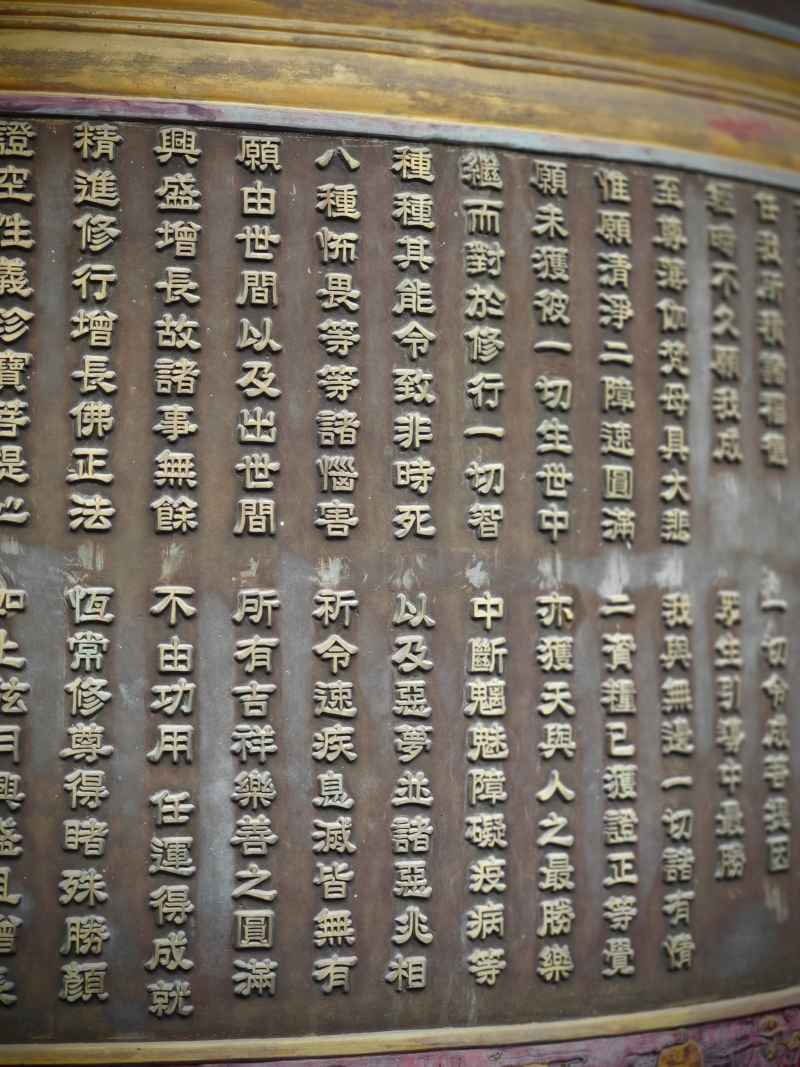 我所積諸福　一切令成菩提因
經時不久願我成　眾生引導中最勝
至尊薄伽梵母具大悲　我與無邊一切諸有情
惟願清淨二障速圓滿　二資糧已獲證正等覺
願未獲彼一切生世中　亦獲天與人之最勝樂
繼而對於修行一切智　中斷魑魅障礙疫病等
種種其能令致非時死　以及惡夢並諸惡兆相
八種怖畏等等諸惱害　祈令速疾息滅皆無有
願由世間以及出世間　所有吉祥樂善之圓滿
興盛增長故諸事無餘　不由功用 任運得成就
精進修行增長佛正法　恆常修尊得睹殊勝顏
證空性義珍寶菩提心　如上弦月興盛且增長